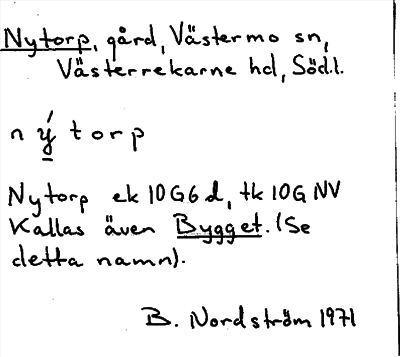 Nytorp, gård, Västermo sn,
Västerrekarne hd, Söd.l.
n ý t o r p
Nytorp ek 10G6d, tk 10G NV
Kallas även Bygget. (Se
detta namn).
B. Nordström 1971